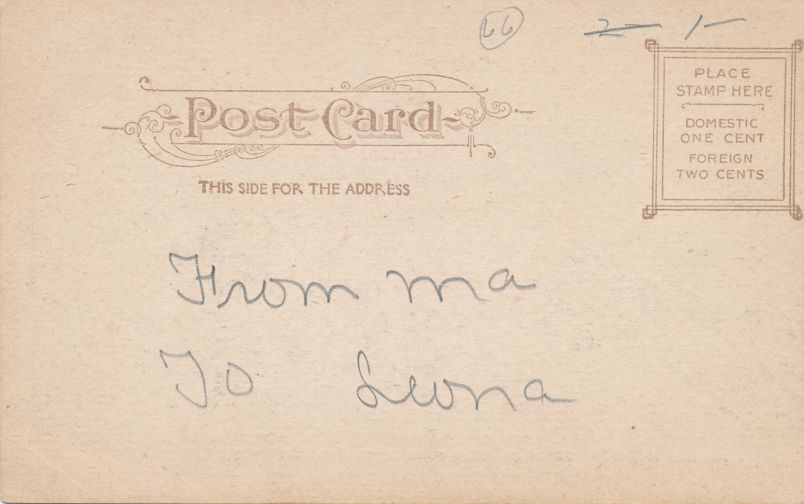 66
2 1
PLACE
STAMP HERE
DOMESTIC
ONE CENT
FOREIGN
TWO CENTS
Post Card
THIS SIDE FOR THE ADDRESS
From Ma
To Leona